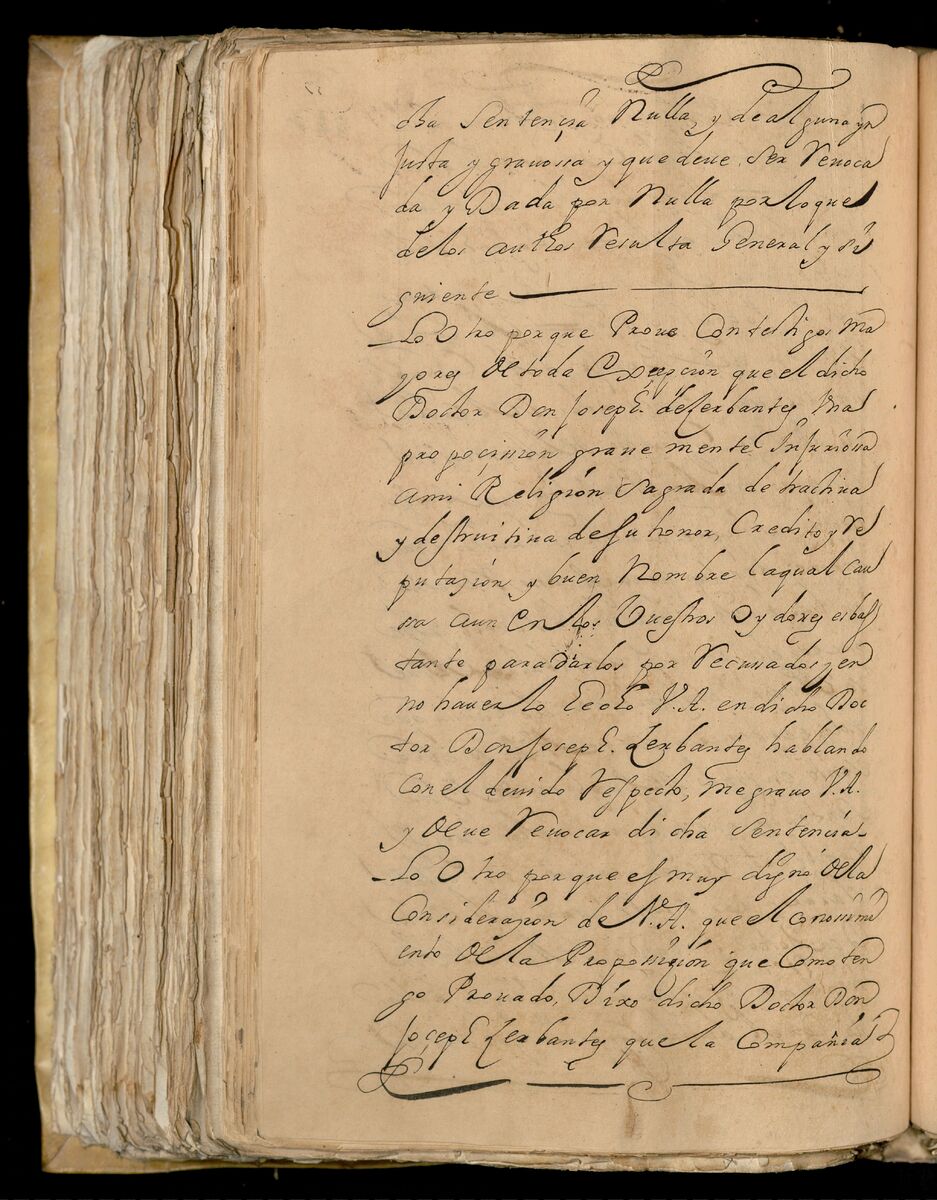 cha Sentençia Nulla, y de alguna yn
justa y gravossa y que deve ser Revoca
da y Dada por Nulla por lo que
de los authos Resulta General y si
guiente
Lo Otro porque Prove Con testigos ma
yores de toda Excepçion que el dicho
Doctor Don Joseph de Zerbantes Una
propoçission gravemente Injuriossa
a mi Religion Sagrada detractiva
y destruitiva de su honor, Credito y Re
putazion y buen Nombre la qual cau
ssa aun en los Vuestros Oydores es bas
tante para Darlos por Recussados y en
no haverlo Echo V.A. en dicho Doc
tor Don Joseph Zerbantes hablando
con el devido Respecto, me gravo V.A.
y deve Revocar dicha Sentençia
Lo Otro porque es muy digno de la
Considerazion de V.A. que el conossimi
ento de la Proposiçion que Como ten
go Provado, Dixo dicho Doctor Don
Joçeph Zerbantes que la Compañia